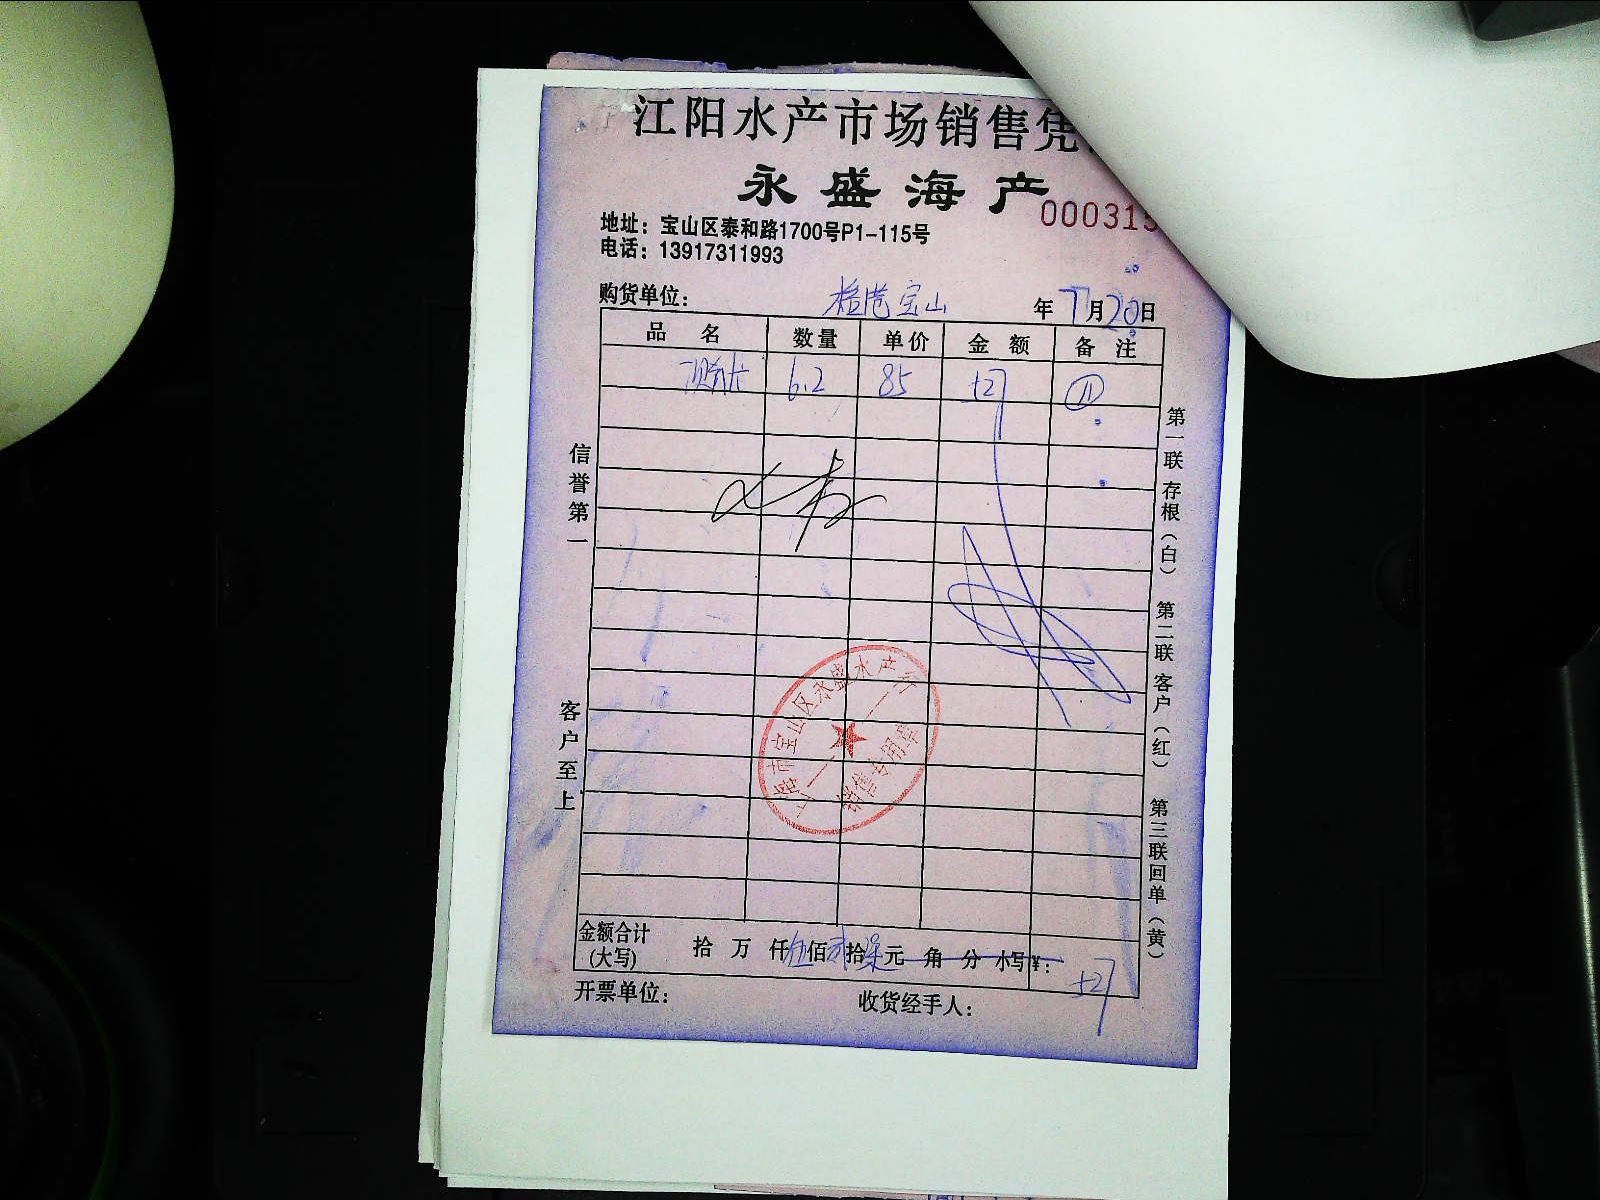 江阳水产市场销售凭
永盛海产
000315
地址：宝山区泰和路1700号P1-115号
电话：13917311993
购货单位： 宝山 年7月20日
品名 数量 单价 金额 备注
6.2 85 527
信誉第一
客户至上
第一联 存根（白） 第二联 客户（红） 第三联 回单（黄）
上海市宝山区永盛水产行
销售专用章
金额合计（大写） 拾 万 仟伍佰贰拾柒元 角 分 小写¥： 527
开票单位： 收货经手人：